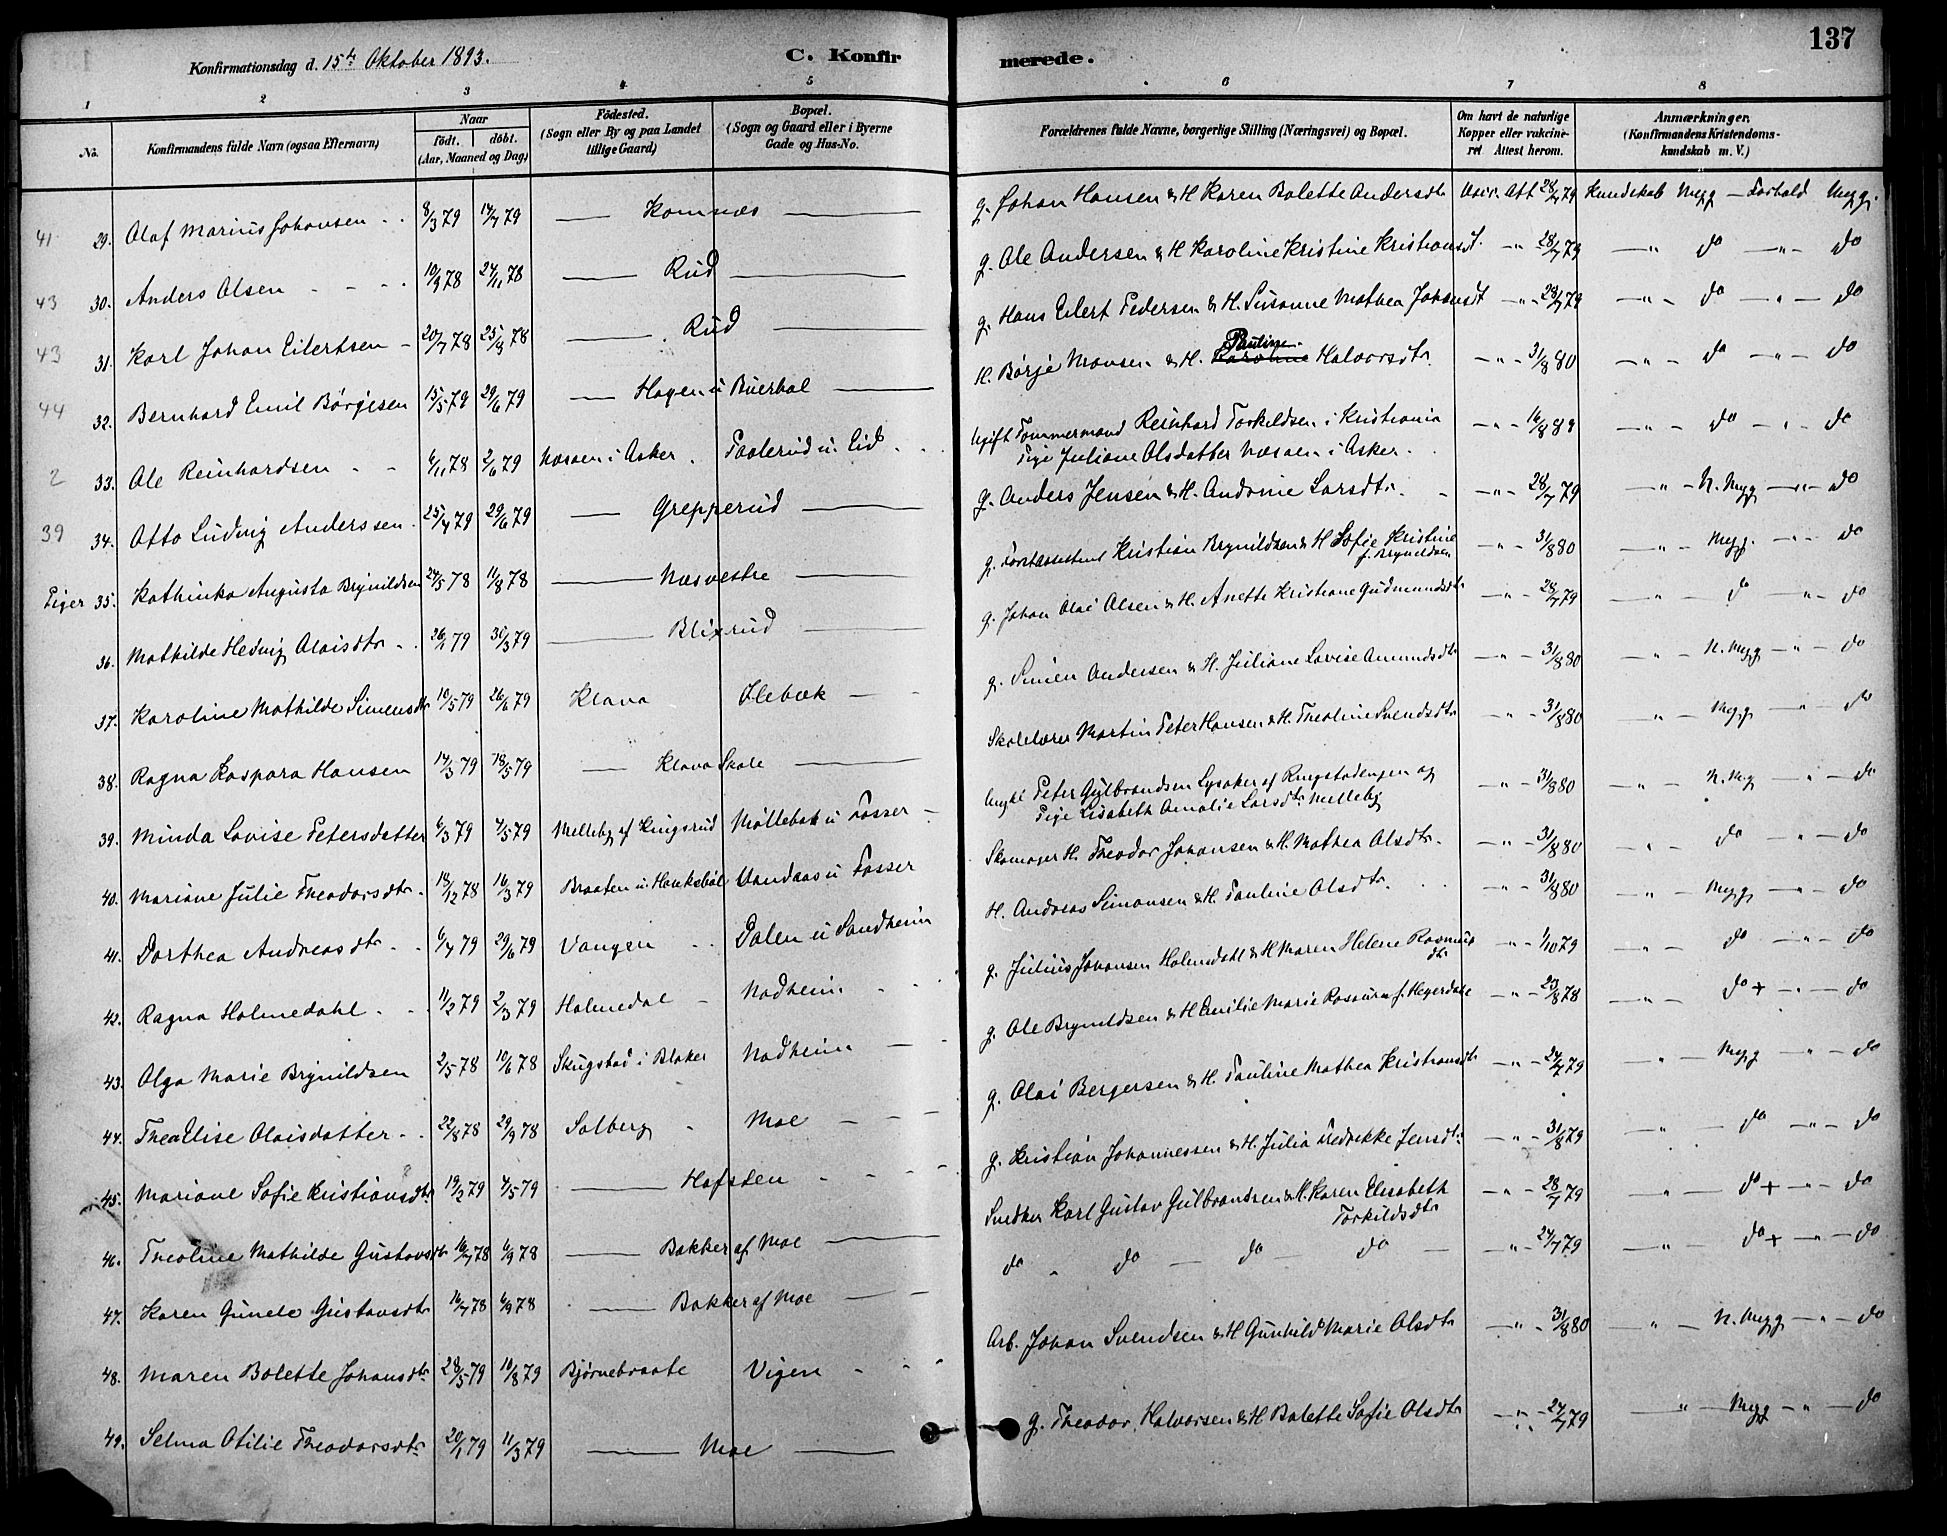 137
Konfirmationsdag d. 15de Oktober 1893.
C. Konfirmerede.
1 2 3 4 5 6 7 8
No.
Konfirmandens fulde Navn (ogsaa Efternavn)
Naar
födt. döbt.
(Aar, Maaned og Dag)
Födested.
(Sogn eller By og paa Landet
tillige Gaard)
Bopæl.
(Sogn og Gaard eller i Byerne
Gade og Hus-No.
Forældrenes fulde Navne, borgerlige Stilling (Næringsvei) og Bopæl.
Om havt de naturlige
Kopper eller vakcine-
ret Attest herom.
Anmærkninger.
(Konfirmandens Kristendoms-
kundskab m. V.)
41 29. Olaf Marius Johansen 8/3 79 14/7 79 — Komnæs — g. Johan Hansen & H Karen Bolette Andersdtr 28/7 79 Kundskab Megg — Forhold Megg.
43 30. Anders Olsen 10/9 78 24/11 78 — Rud — g. Ole Andersen & H Karoline Kristine Kristiansdt. — " — 28/7 79 — " do — " — do
43 31. Karl Johan Eilertsen 20/7 78 25/8 78 — Rud — g. Hans Eilert Pedersen & H. Susanne Mathea Johansdt — " — 28/7 79 — " — do — " — do
44 32. Bernhard Emil Börgesen 15/5 79 29/6 79 — Hagen u Buerhol — H. Börje Monsen & H. Pauline Halvorsdtr. — " — 31/8 80 — " — do — " — do
2 33. Ole Reinhardsen 6/11 78 2/6 79 Næsoen i Asker. Paalerud u. Eid Ugift Tömmermand Reinhard Torkildsen i Kristiania — " — 16/8 89 — " — do — " — do
Pige Juliane Olsdatter Næsoen i Asker.
39 34. Otto Ludvig Anderssen 25/4 79 29/6 79 — Grepperud — g. Anders Jensen & H. Andrine Larsdtr. — " — 28/7 79 — " — N. Megg — " — do
Piger 35. Kathinka Augusta Brynildsen 24/5 78 11/8 78 — Næsvestre — g. Forstassistent Kristian Brynildsen & H Sofie Kristine — " — 31/8 80 — " — Megg. — " — do
f. Brynildsen
36. Mathilde Hedvig Olaisdtr 26/1 79 30/3 79 — Blixrud — g. Johan Olai Olsen & H. Anette Kristiane Gudmundsdtr — " — 28/7 79 — " — do — " — do
37. Karoline Mathilde Simensdtr 10/5 79 26/6 79 Klava Ilebæk — g. Simen Andersen & H. Juliane Lovise Amundsdtr — " — 31/8 80 — " — N. Megg — " — do
38. Ragna Kaspara Hansen 14/3 79 18/5 79 — Klava Skole — Skolelærer Martin Peter Hansen & H. Theoline Svendsdtr — " — 31/8 80 — " — Megg — " — do
39. Minda Lovise Petersdatter 6/3 79 4/5 79 Melleby af Kingsrud Möllebak u Fosser — Ungkl Peter Gulbrandsen Lysaker af Ringstadengen og — " — 31/8 80 — " — N. Mg — " — do
Pige Lisabeth Amalie Larsdtr Melleby
40. Mariane Julie Theodorsdtr. 18/12 78 16/3 79 Braaten u. Hauksböl Vandaas u Fosser Skomager H. Theodor Johansen & H. Mathea Olsdtr. — " — 31/8 80 — " — do — " — do
41. Dorthea Andreasdtr. 6/4 79 29/6 79 Vangen Dalen u Sandheim H. Andreas Simonsen & H. Pauline Olsdtr. — " — 31/8 80 — " — Megg — " — do
42. Ragna Holmedahl 11/2 79 2/3 79 Holmedal Nodheim g. Julius Johansen Holmedahl & H Maren Helene Rasmus — " — 1/10 79 — " — do — " — do
dtr.
43. Olga Marie Brynildsen 2/5 78 10/6 78 Skugstad i Blaker Nodheim g. Ole Brynildsen & H Emilie Marie Rosaura f. Hegerdale — " — 23/8 78 — " — do + — " — do
44. Thea Elise Olaisdatter 22/8 78 29/9 78 Solberg Moe g. Olai Bergersen & H. Pauline Mathea Kristiansdtr — " — 24/7 79 — " — Megg — " — do
45. Mariane Sofie Kristiansdtr 19/2 79 4/5 79 — Hofsten g. Kristian Johannessen & H. Julia Fredrikke Jensdtr. — " — 31/8 79 — " — do — " — do
46. Theoline Mathilde Gustavsdtr 16/7 78 6/9 78 — Bakker af Moe — Snedker Karl Gustav Gulbrandsen & H. Karen Elisabeth — " — 28/7 79 — " — do + — " — do
Torkildsdtr
47. Karen Gunele Gustavsdtr 16/7 78 6/9 78 — Bakker af Moe — do do do do — " — 24/7 79 — " — do + — " — do
48. Maren Bolette Johansdtr. 28/5 79 10/8 79 Bjørnebraate Vigen Arb. Johan Svendsen & H Gunhild Marie Olsdtr — " — 31/8 80 — " — N. Megg — " — do
49. Selma Otilie Theodorsdtr 20/1 79 11/3 79 — Moe — g. Theodor Halvorsen & H Bolette Sofie Olsdtr — " — 24/7 79 — " — Megg — " — do